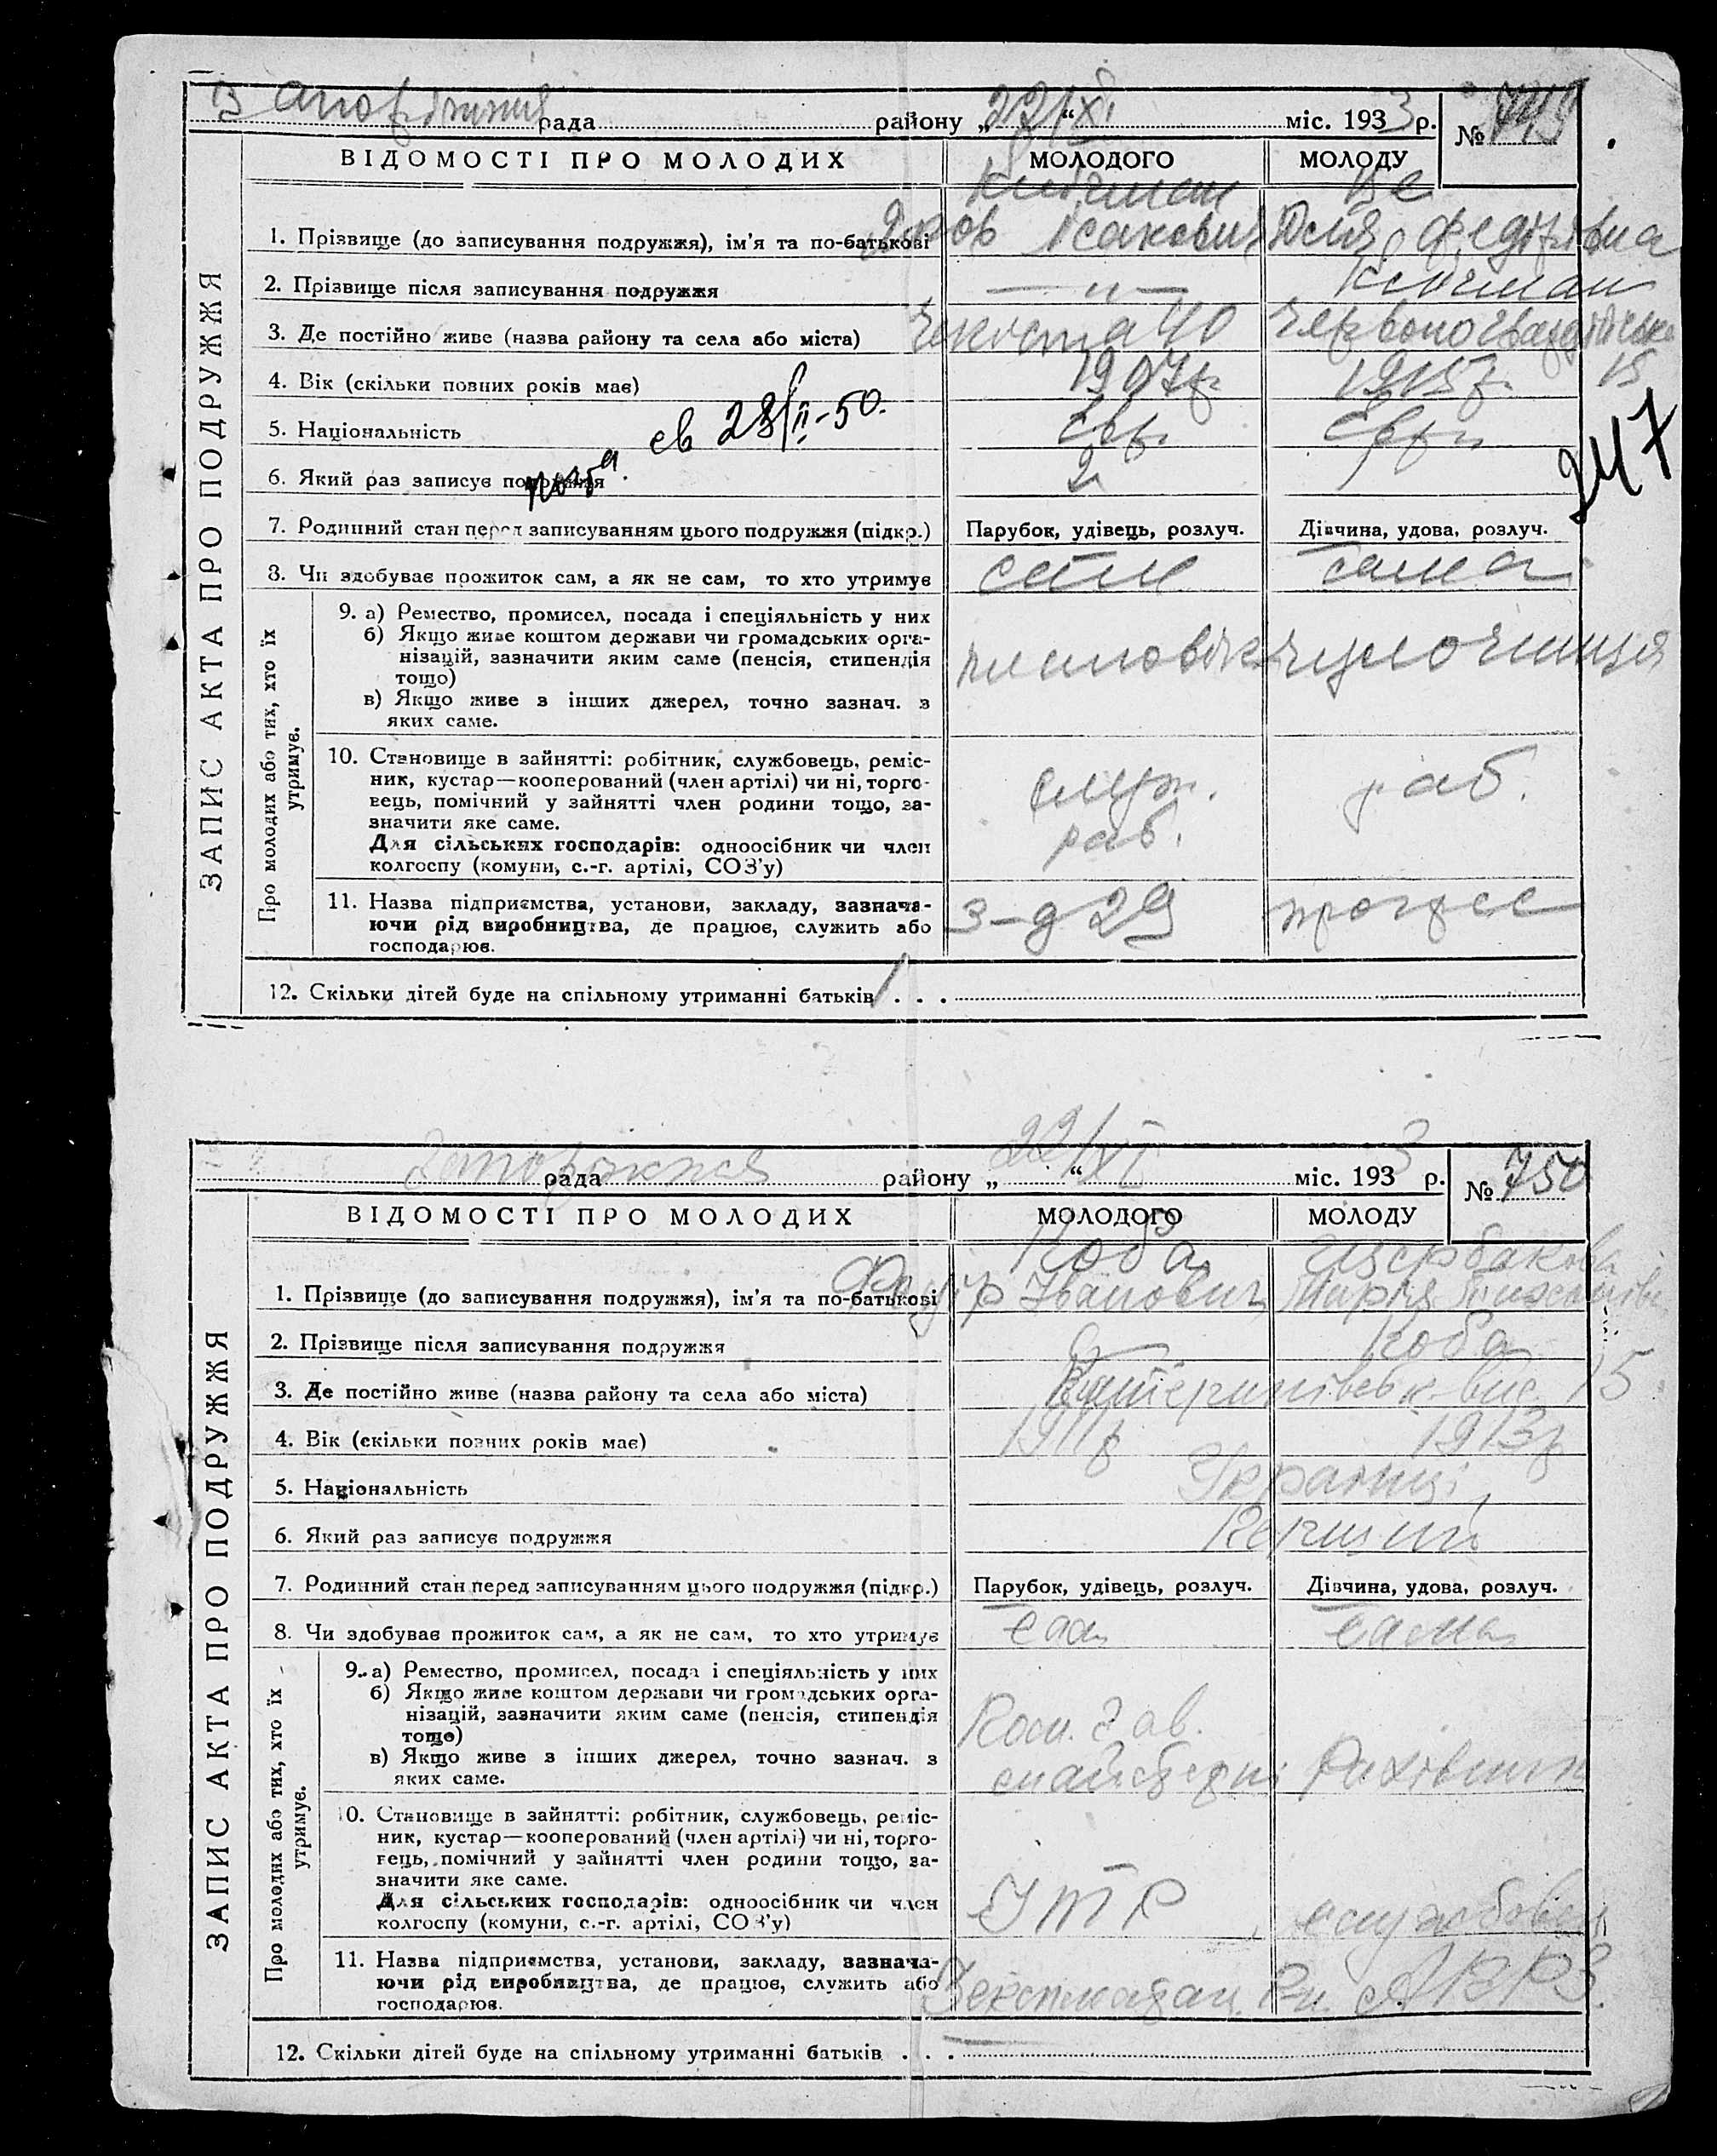 рада району „22/XI“ міс. 1933 р. № 749
ВІДОМОСТІ ПРО МОЛОДИХ МОЛОДОГО МОЛОДУ
ЗАПИС АКТА ПРО ПОДРУЖЖЯ
1. Прізвище (до записування подружжя), ім'я та по-батькові Ісакович Федірівна
2. Прізвище після записування подружжя — „ —
3. Де постійно живе (назва району та села або міста) 40 15
4. Вік (скільки повних років має) 1907 р. 1915 р.
5. Національність Євр. Євр.
св 28/II-50.
247
6. Який раз записує подружжя 2 1
7. Родинний стан перед записуванням цього подружжя (підкр.) Парубок, удівець, розлуч. Дівчина, удова, розлуч.
8. Чи здобуває прожиток сам, а як не сам, то хто утримує сам сама
Про молодих або тих, хто їх утримує.
9. а) Ремество, промисел, посада і спеціяльність у них
б) Якщо живе коштом держави чи громадських орга-
нізацій, зазначити яким саме (пенсія, стипендія
тощо)
в) Якщо живе з інших джерел, точно зазнач. з
яких саме.
10. Становище в зайнятті: робітник, службовець, реміс-
ник, кустар—кооперований (член артілі) чи ні, торго-
вець, помічний у зайнятті член родини тощо, за-
значити яке саме.
Для сільських господарів: одноосібник чи член
колгоспу (комуни, с.-г. артілі, СОЗ'у)
служ. раб.
раб.
11. Назва підприємства, установи, закладу, зазнача-
ючи рід виробництва, де працює, служить або
господарює.
з-д 29 прогрес
12. Скільки дітей буде на спільному утриманні батьків . . .
Запоріжжя рада району „22/XI“ міс. 1933 р. № 750
ВІДОМОСТІ ПРО МОЛОДИХ МОЛОДОГО МОЛОДУ
ЗАПИС АКТА ПРО ПОДРУЖЖЯ
Коба Щербакова
1. Прізвище (до записування подружжя), ім'я та по-батькові Іванович Марія
2. Прізвище після записування подружжя Коба
3. Де постійно живе (назва району та села або міста) 15
4. Вік (скільки повних років має) 1911 р 1913 р
5. Національність Українці
6. Який раз записує подружжя
7. Родинний стан перед записуванням цього подружжя (підкр.) Парубок, удівець, розлуч. Дівчина, удова, розлуч.
8. Чи здобуває прожиток сам, а як не сам, то хто утримує сам сама
Про молодих або тих, хто їх утримує.
9. а) Ремество, промисел, посада і спеціяльність у них
б) Якщо живе коштом держави чи громадських орга-
нізацій, зазначити яким саме (пенсія, стипендія
тощо)
в) Якщо живе з інших джерел, точно зазнач. з
яких саме.
зав.
майстерні
10. Становище в зайнятті: робітник, службовець, реміс-
ник, кустар—кооперований (член артілі) чи ні, торго-
вець, помічний у зайнятті член родини тощо, за-
значити яке саме.
Для сільських господарів: одноосібник чи член
колгоспу (комуни, с.-г. артілі, СОЗ'у)
ІТР службовец
11. Назва підприємства, установи, закладу, зазнача-
ючи рід виробництва, де працює, служить або
господарює.
12. Скільки дітей буде на спільному утриманні батьків . . .